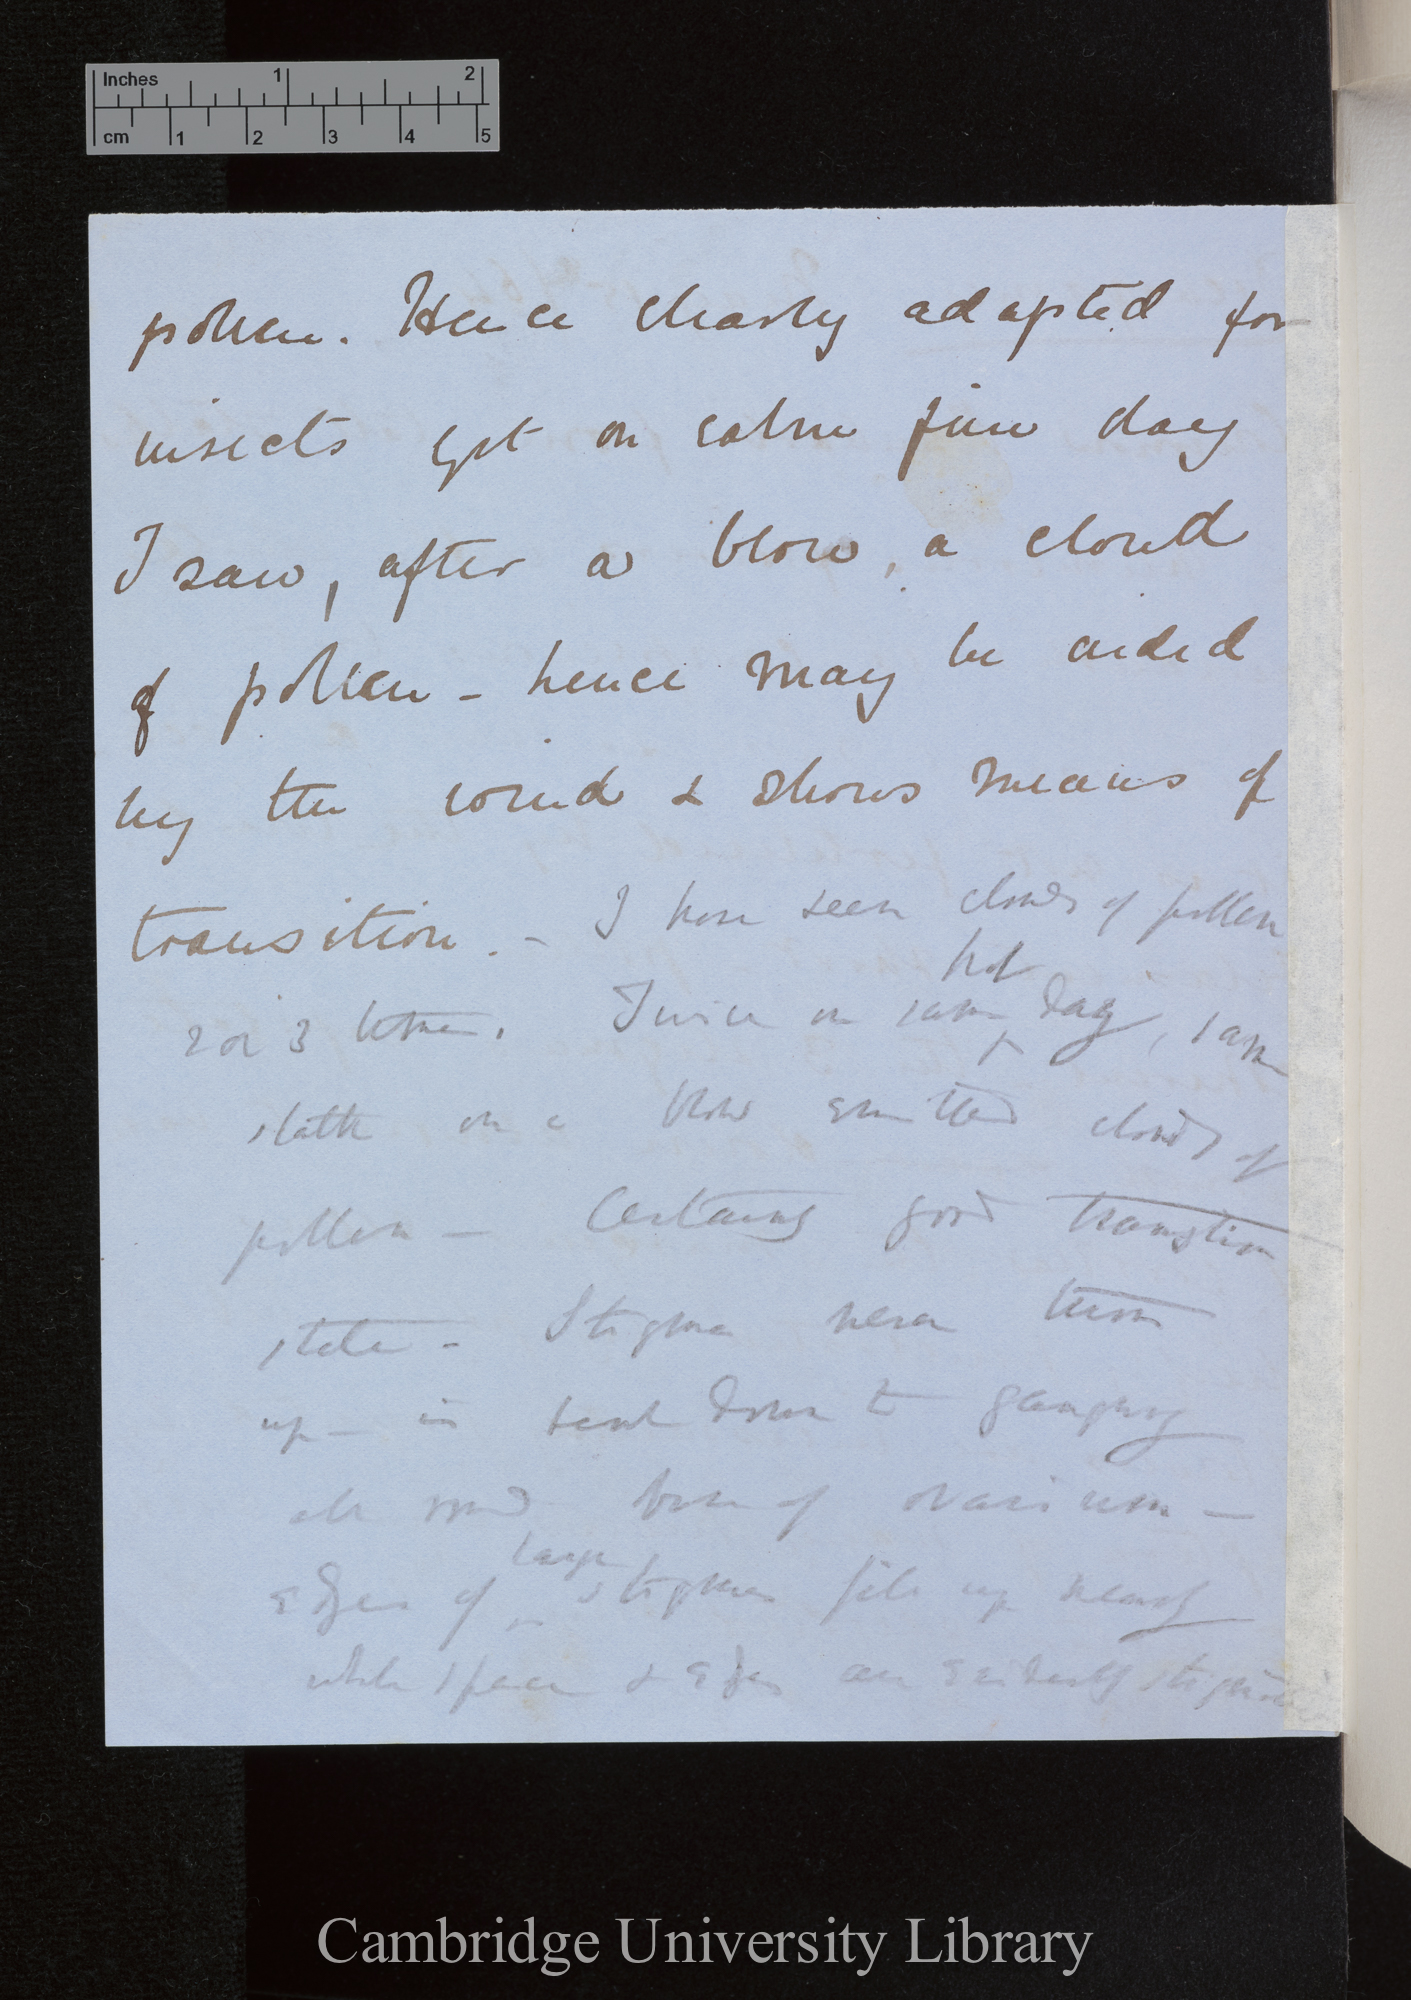 Inches 1 2
cm 1 2 3 4 5
pollen. Hence clearly adapted for
insects yet on calm fine day
I saw, after a blow, a cloud
of pollen - hence may be aided
by the wind & shows means of
transition. - I have seen clouds of pollen
2 or 3 times. Twice on calm hot day, saw
on a blow emitted clouds of
pollen - Certainly good transition
state - Stigma never turn
up - is down to
all round base of ovarium -
edges of large stigmas fill up nearly
whole space & edges are evidently
Cambridge University Library